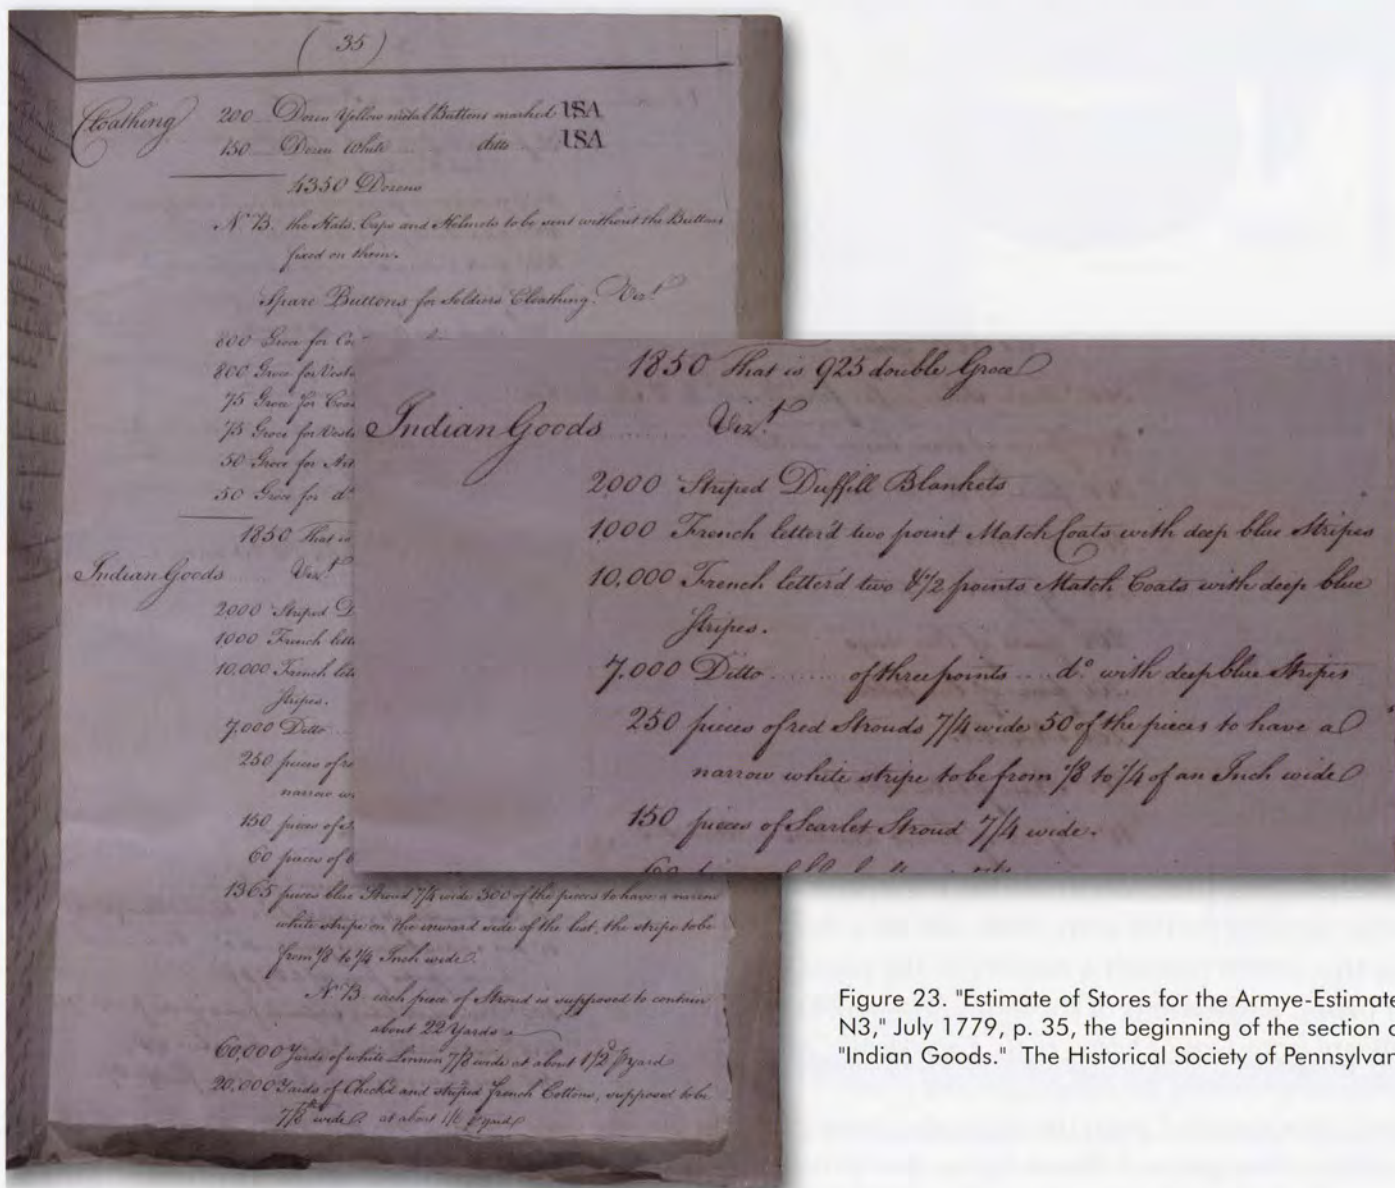 ( 35 )
Cloathing 200 Dozen Yellow metal Buttons marked USA
150 Dozen White ditto USA
4350 Dozens
N.B. the Hats, Caps and Helmets to be sent without the Buttons
fixed on them.
Spare Buttons for Soldiers Cloathing. Vizt
800 Groce for
800 Groce for Vests
75 Groce for Coats
75 Groce for Vests
50 Groce for Art
50 Groce for do
1850 That is
Indian Goods Vizt
2000 Striped D
1000 French lette
10.000 French lette
Stripes.
7.000 Ditto
250 pieces of re
narrow w
150 pieces of S
60 pieces of b
1365 pieces blue Stroud 7/4 wide 300 of the pieces to have a narrow
white stripe on the inward side of the list, the stripe to be
from 1/8 to 1/4 Inch wide.
N.B. each piece of Stroud is supposed to contain
about 22 Yards
60,000 Yards of white Linnen 7/8 wide at about yard
20,000 Yards of Check'd and striped french Cottons, supposed to be
7/8 wide at about yard
1850 That is 925 double Groce
Indian Goods Vizt
2000 Striped Duffill Blankets
1000 French letter'd two point Match Coats with deep blue Stripes
10.000 French letter'd two & 1/2 points Match Coats with deep blue
Stripes.
7.000 Ditto of three points do with deep blue Stripes
250 pieces of red Strouds 7/4 wide 50 of the pieces to have a
narrow white stripe to be from 1/8 to 1/4 of an Inch wide
150 pieces of Scarlet Stroud 7/4 wide.
Figure 23. "Estimate of Stores for the Armye-Estimate
N3," July 1779, p. 35, the beginning of the section o
"Indian Goods." The Historical Society of Pennsylvan